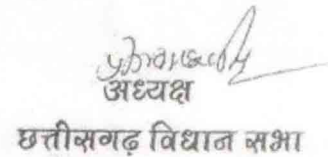 अध्यक्ष
छत्तीसगढ़ विधान सभा